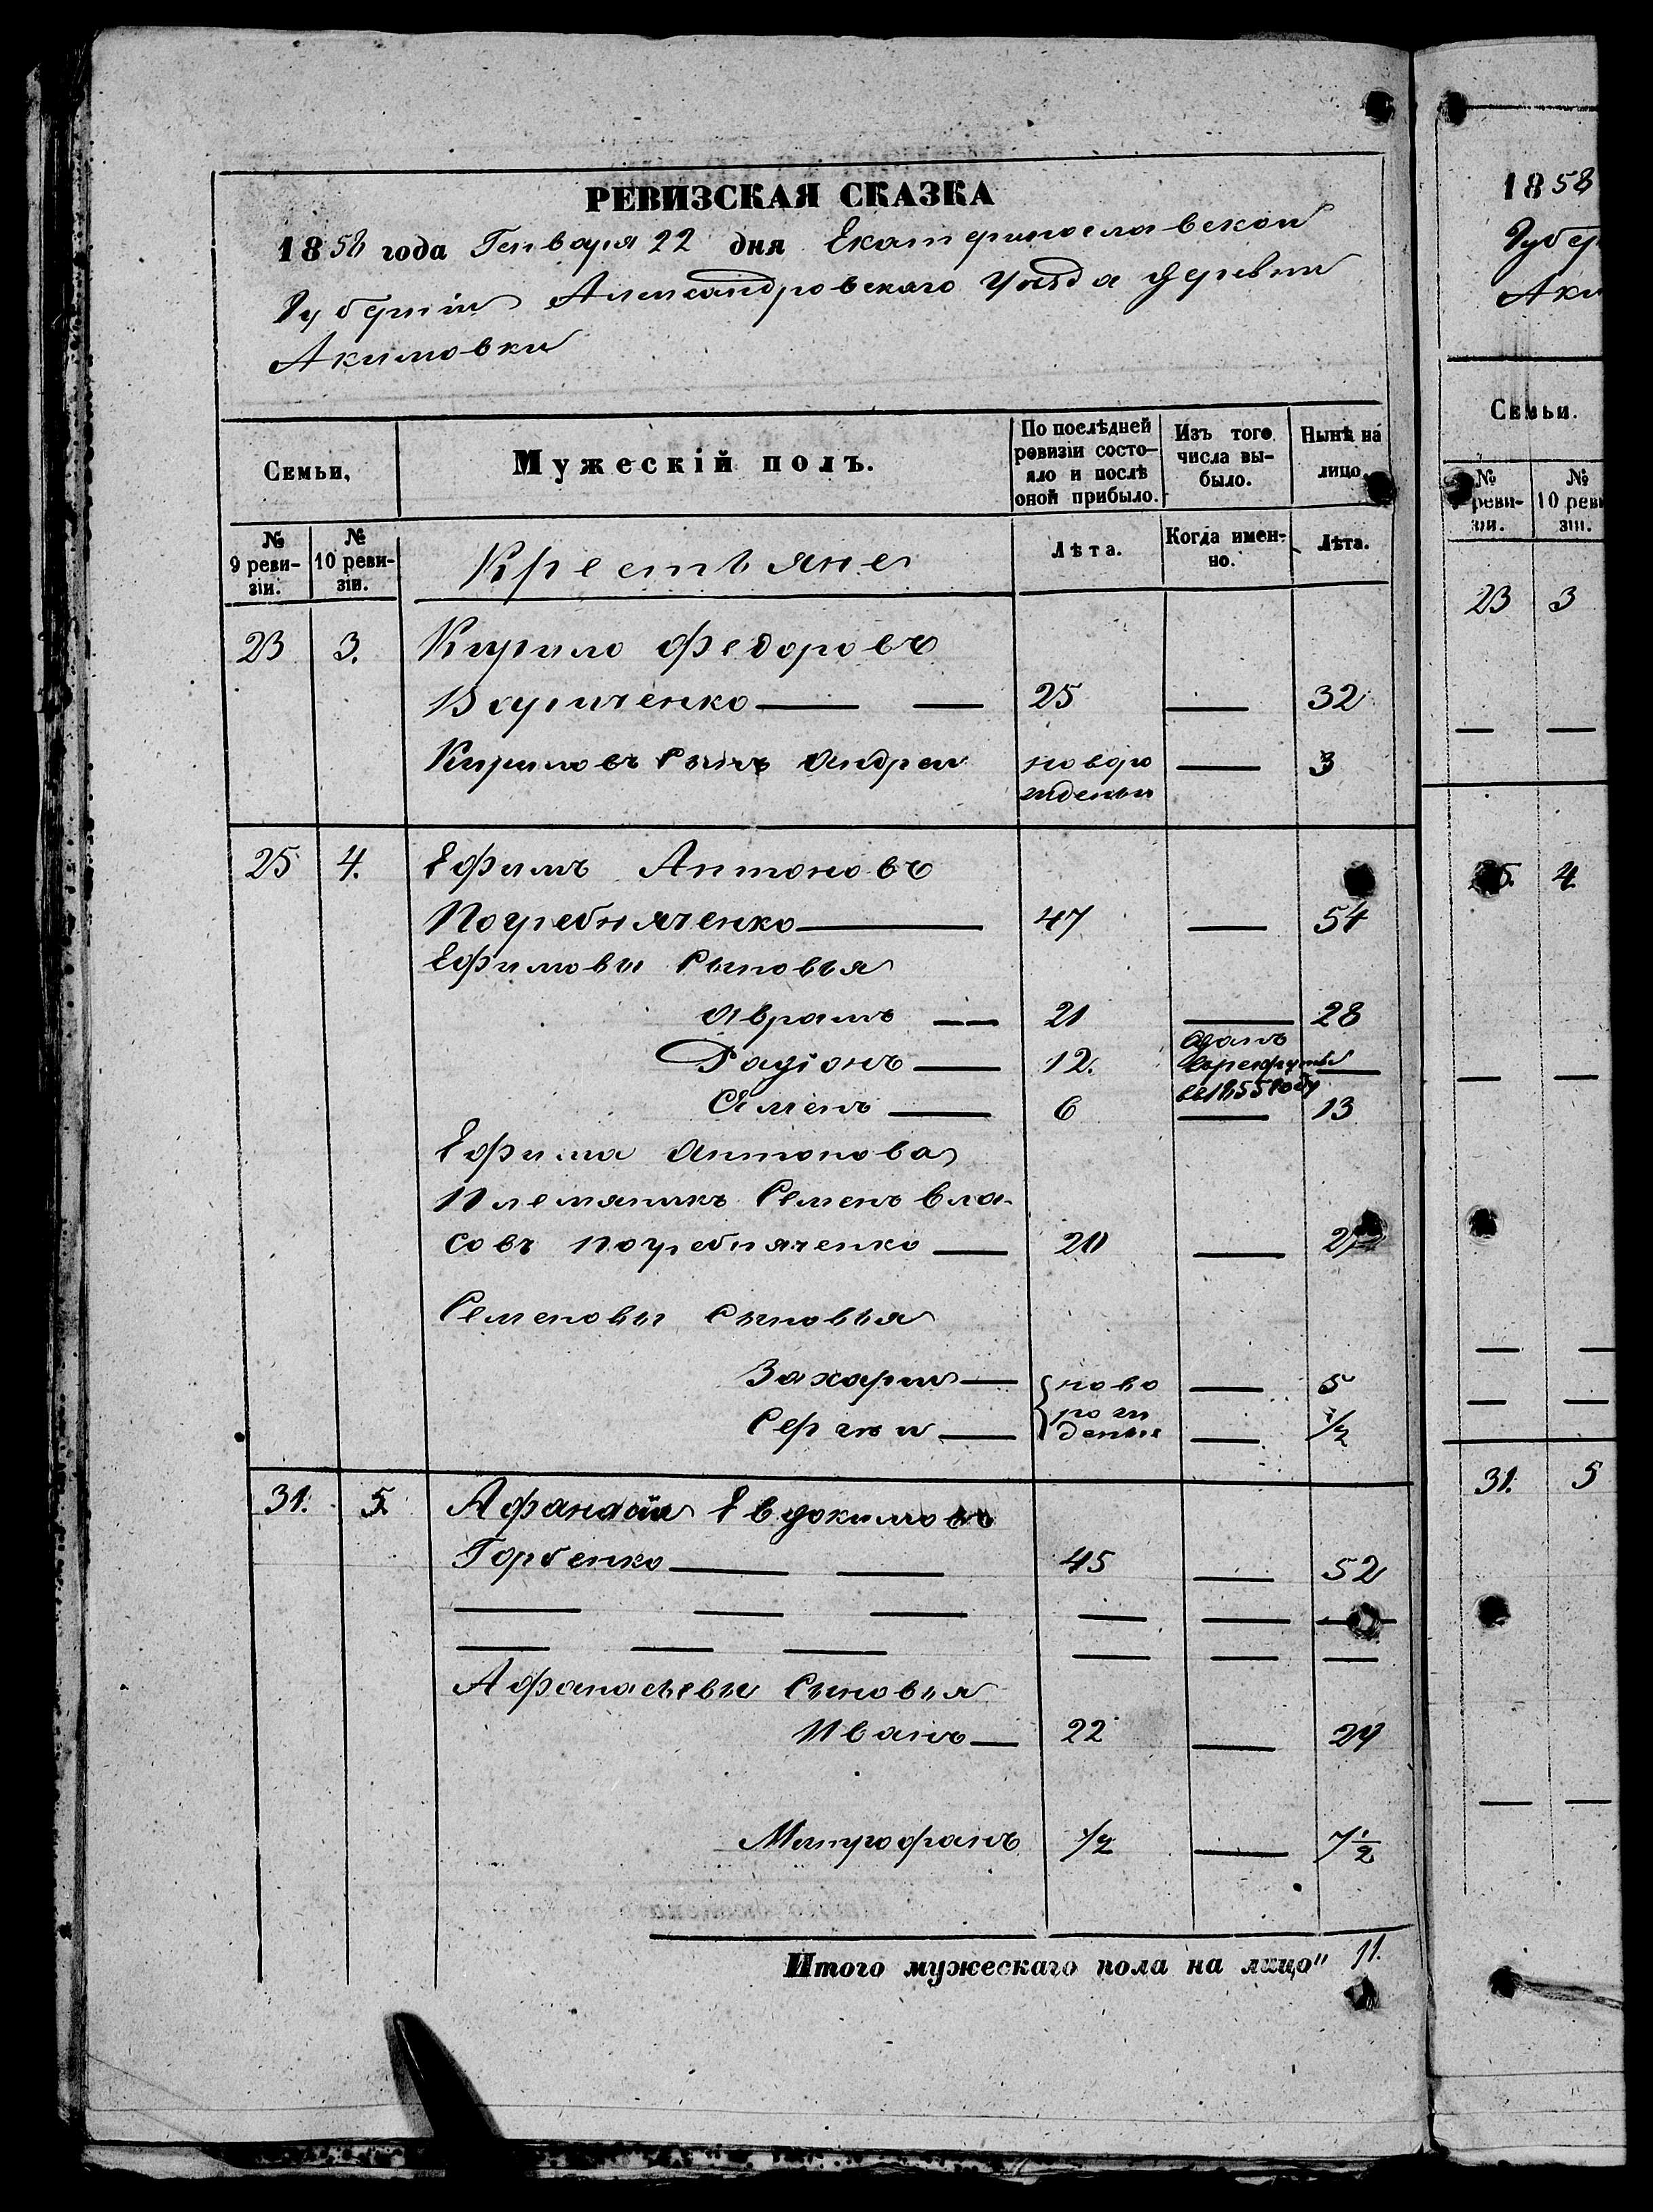 РЕВИЗСКАЯ СКАЗКА
1858 года Генваря 22 дня Екатеринославской
Губернiи Александровскаго Уѣзда деревни
Акимовки
Семьи.
Мужескiй полъ.
По послѣдней ревизiи состо-
яло и послѣ
оной прибыло.
Изъ того
числа вы-
было.
Нынѣ на
лицо.
№
9 реви-
зiи.
№
10 реви-
зiи.
Крестьяне
Лѣта.
Когда имен-
но.
Лѣта.
23 3. Кирило Федоровъ
25 — 32
Кириловъ Сынъ Андреи новоро — 3
жденыи
25 4. Ефимъ Антоновъ
Погребняченко — 47 — 54
Ефимовы Сыновья
Аврамъ — 21 — 28
Радiонъ — 12. отданъ
в рекруты —
в 1855 году
Семенъ — 6 — 13
Ефима Антонова
Племяникъ Семенъ Вла-
совъ Погребняченко — 20 — 27
Семеновы Сыновья
Захарии — ново — 5
Сергѣи — рож
деныя — 1/2
31. 5. Афанасiи Евдокимовъ
Горбенко — — 45 — 52
— — — — — —
— — — — — —
Афанасьевы Сыновья
Иванъ — 22 — 29
Митрофанъ 1/2 — 7 1/2
Итого мужескаго пола на лицо" 11.
1858
Губер
Аки
Семьи.
№
реви-
зiи.
№
10 реви
зiи.
23 3
— —
25. 4
— —
— —
— —
31. 5
— —